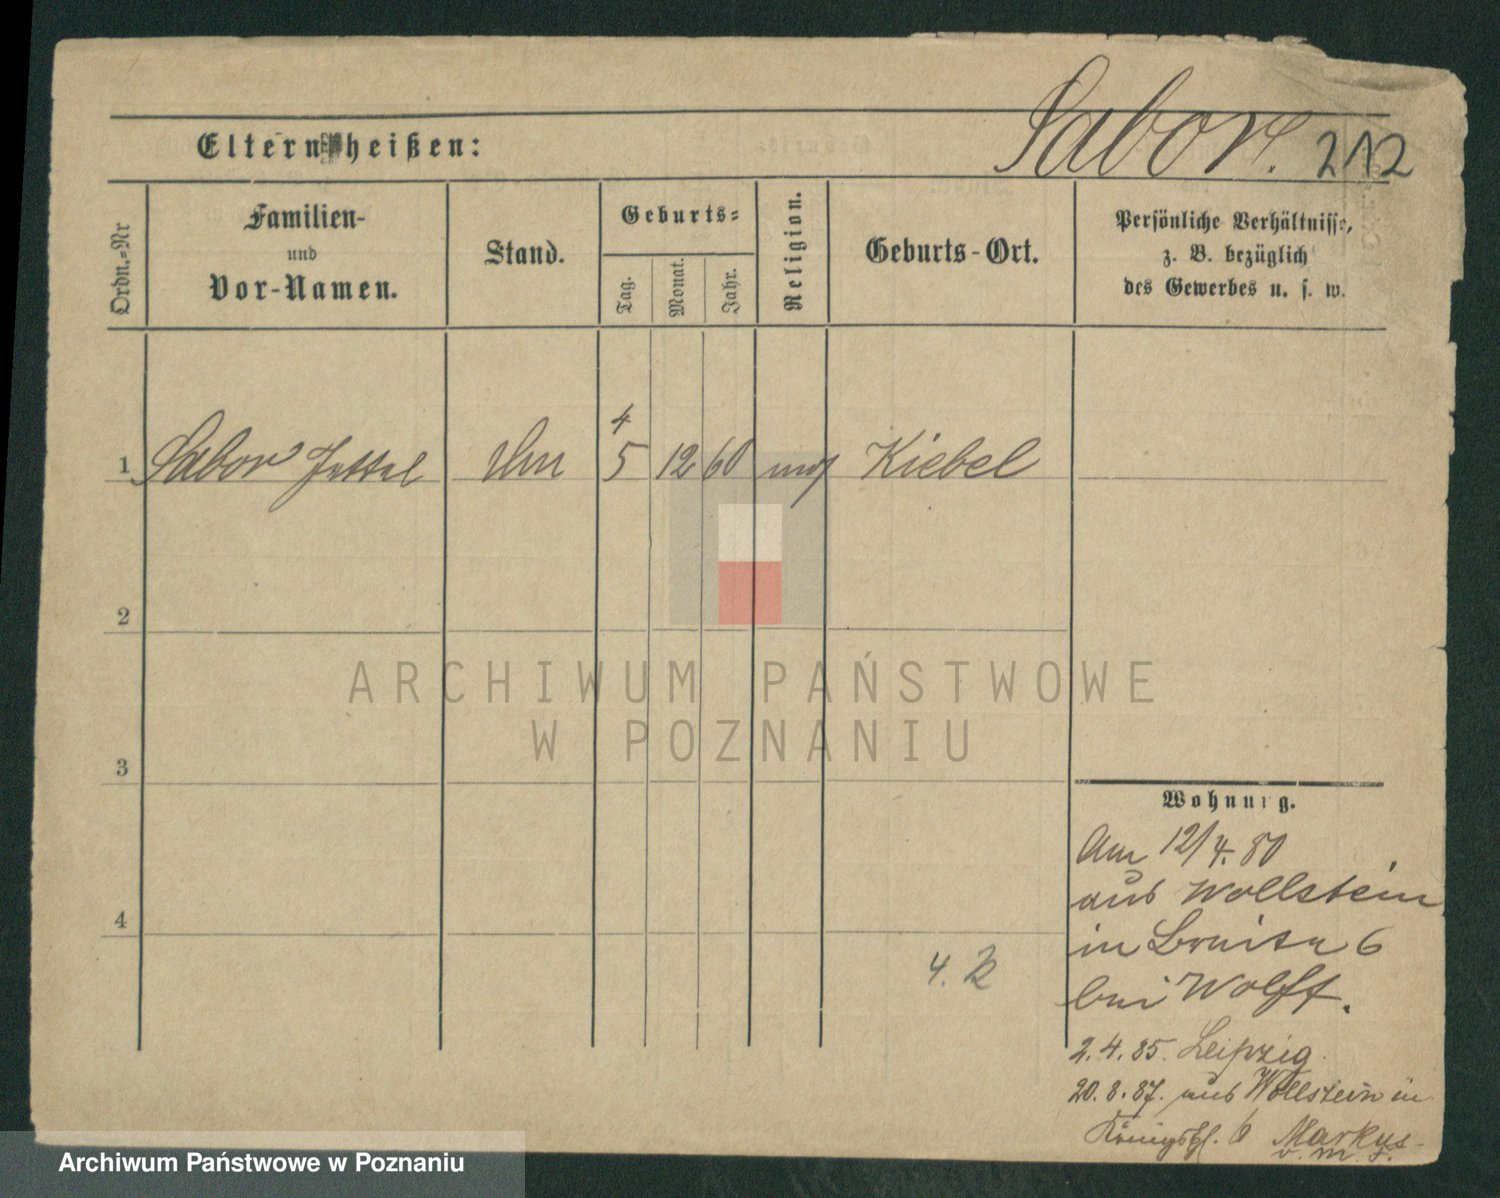 Sabor. 212
Eltern heißen:
Ordn.-Nr
Familien-
und
Vor-Namen.
Stand.
Geburts-
Tag.
Monat.
Jahr.
Religion.
Geburts-Ort.
Persönliche Verhältnisse,
z. B. bezüglich
des Gewerbes u. s. w.
4
1 Sabor Jettel 5 12 60 mos Kiebel
2
3
4
4. K
Wohnung.
Am 12/4. 80
aus Wollstein
in Breite 6
bei Wolff.
2. 4. 85. Leipzig.
20. 8. 87. aus Wollstein in
Königspl. 6 Markus
ARCHIWUM PAŃSTWOWE
W POZNANIU
Archiwum Państwowe w Poznaniu